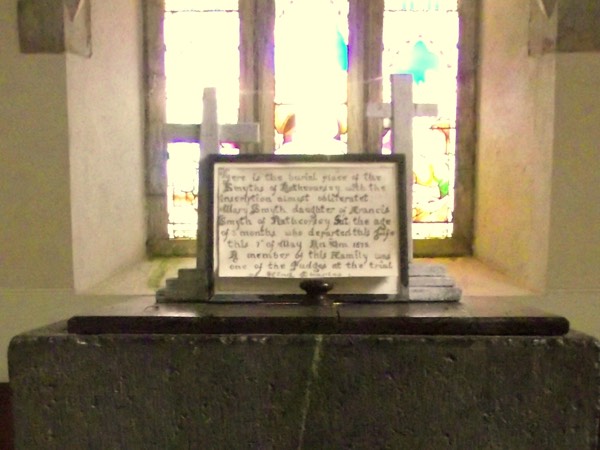 Here is the burial place of the
Smyths of Rathcoursey with the
inscription almost obliterated.
Mary Smyth daughter of Francis
Smyth of Rathcoursey at the age
of months who departed this life
this 1st of May An Dom
A member of this Family was
one of the Judges at the trial
of